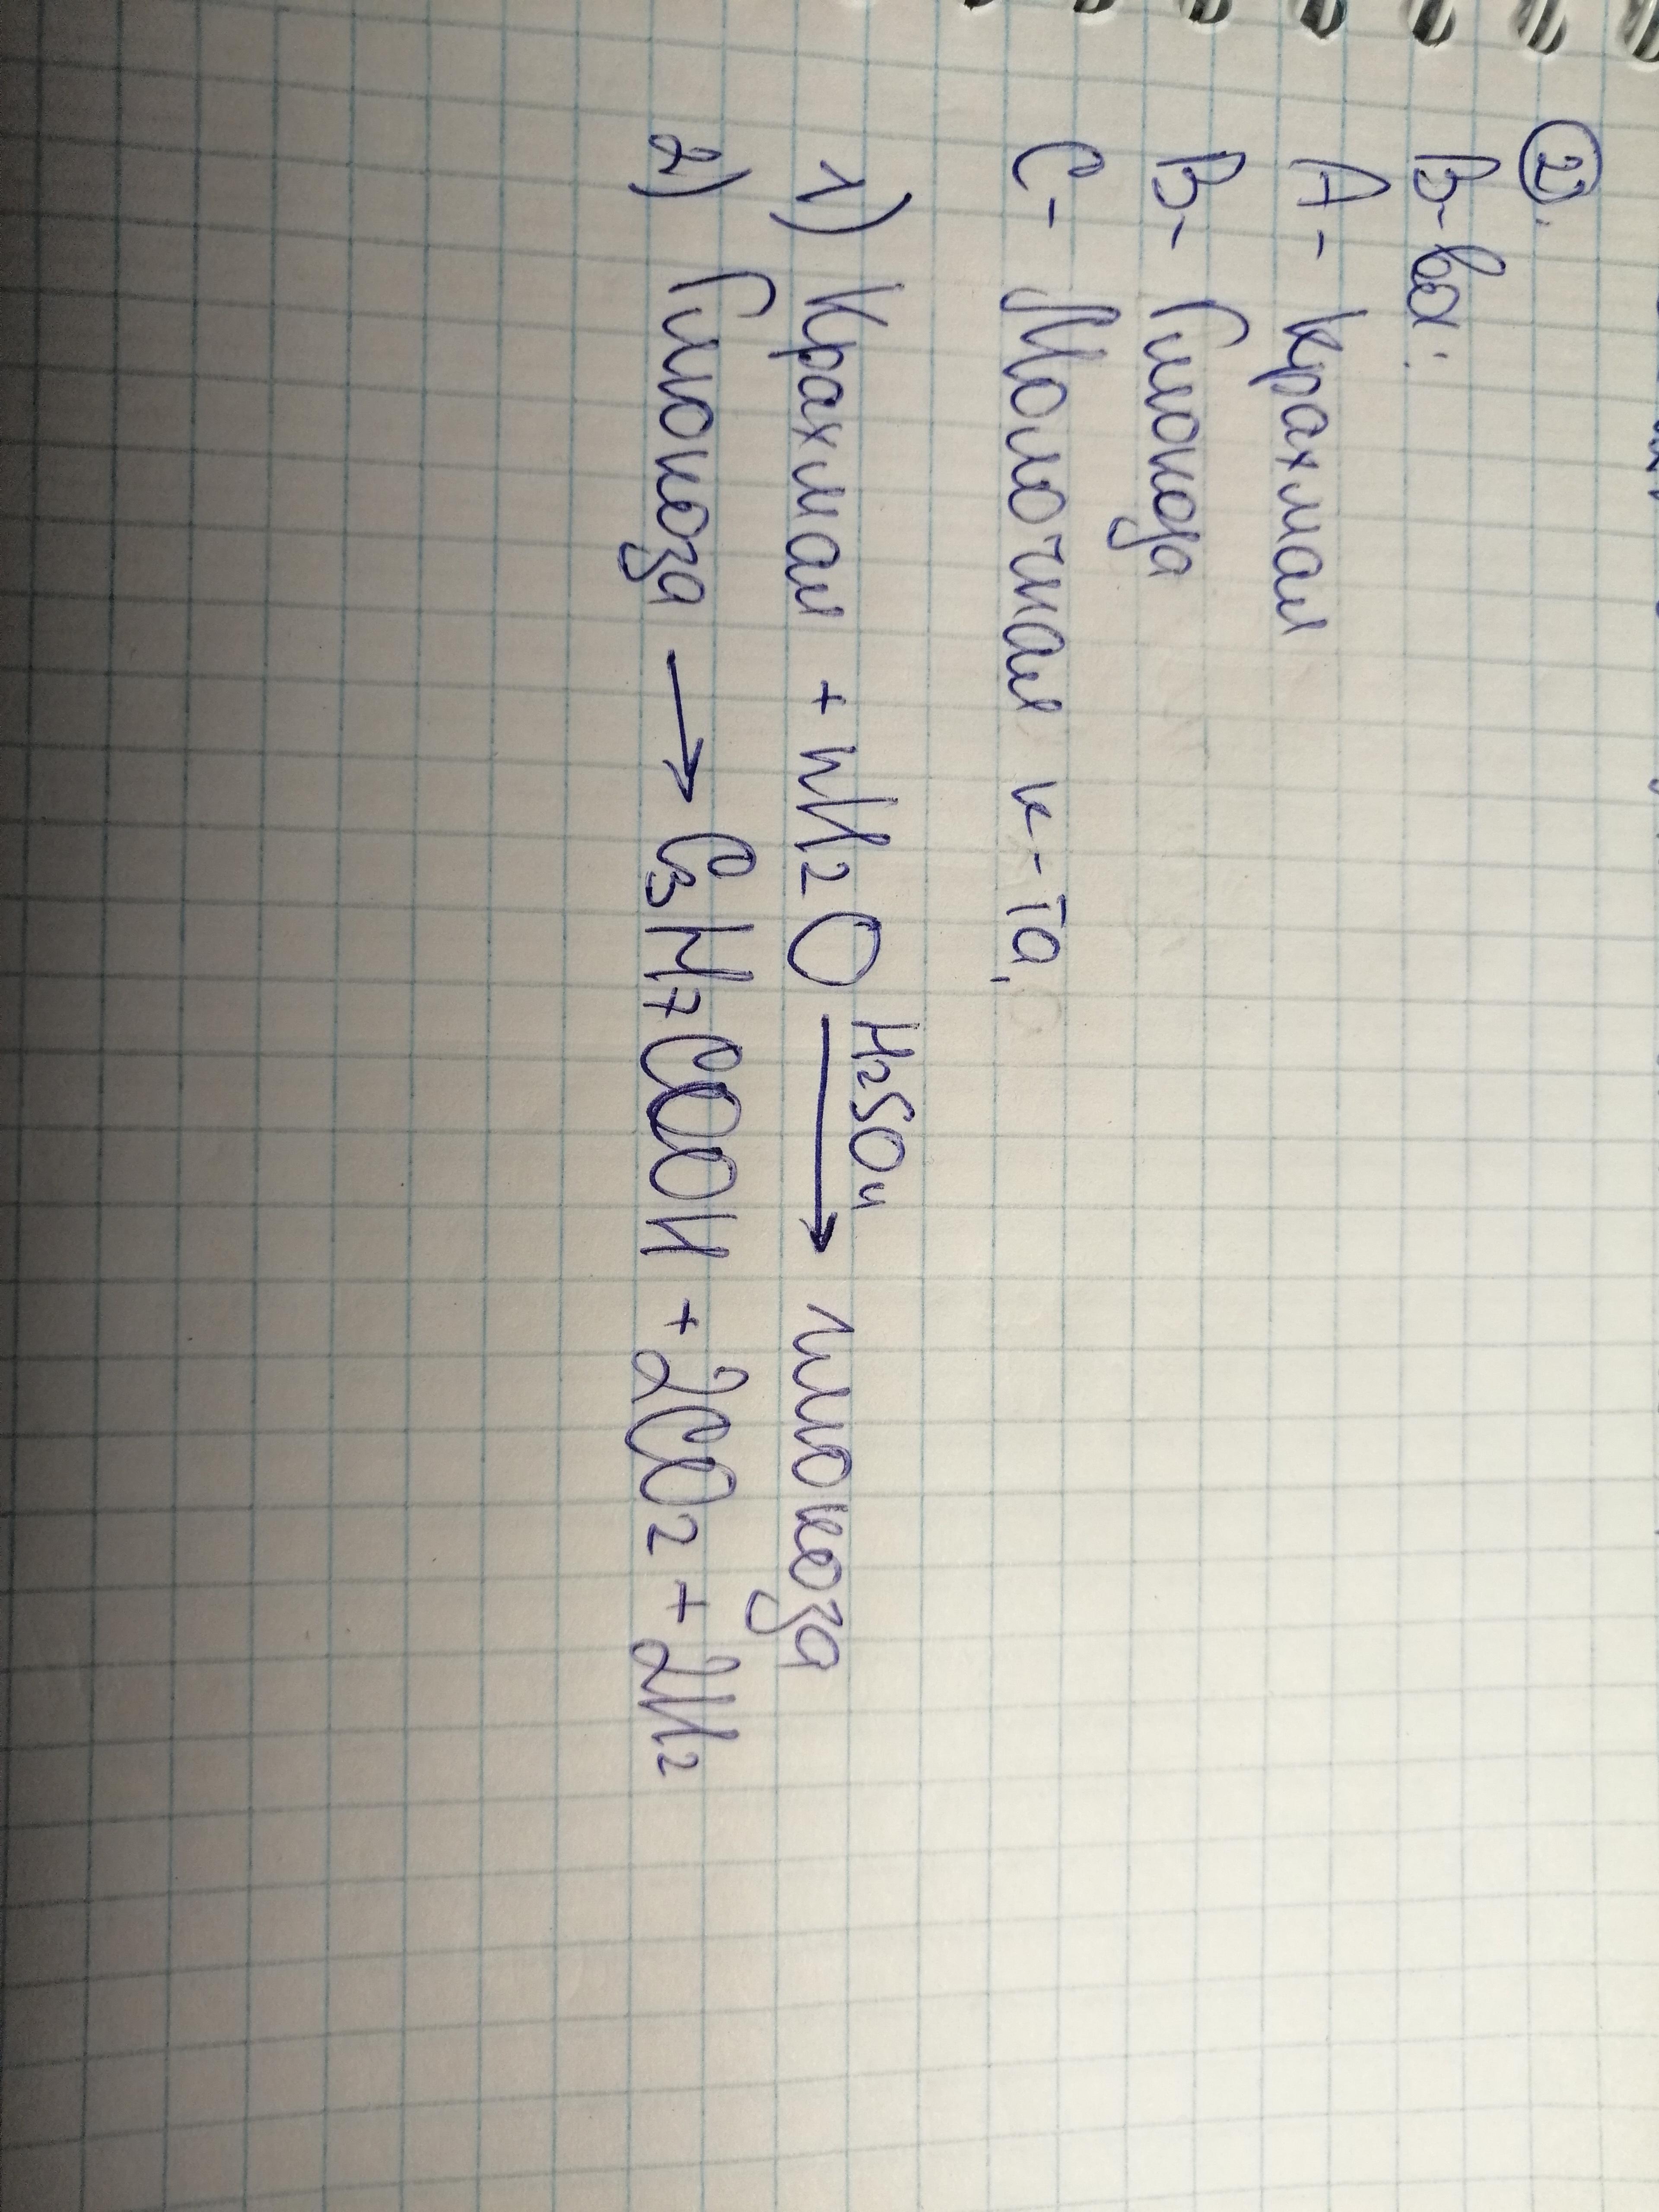 2).
В-ва:
А - крахмал
В - Глюкоза
С - Молочная к-та,
1) Крахмал + nH2O H2SO4 → глюкоза
2) Глюкоза → C3H7COOH + 2CO2 + 2H2